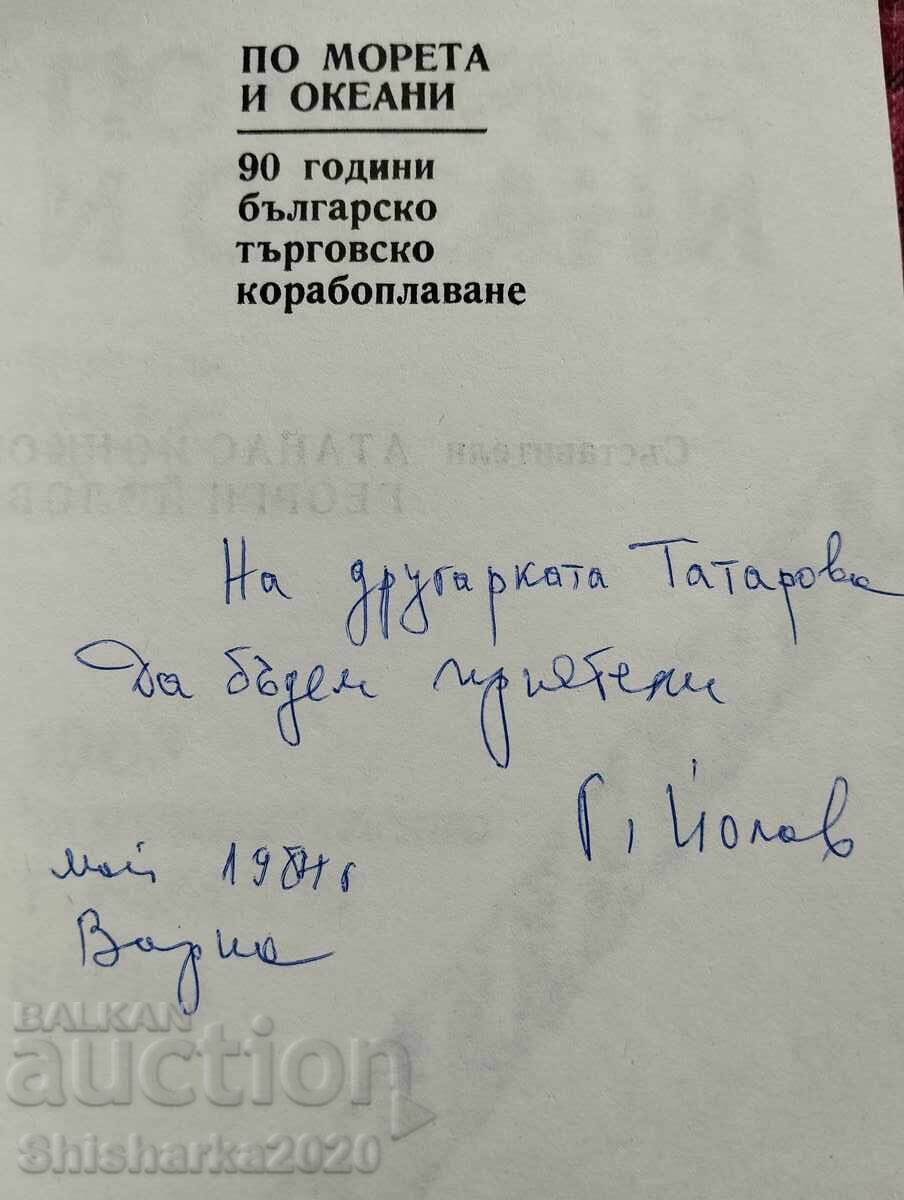 ПО МОРЕТА
И ОКЕАНИ
90 години
българско
търговско
корабоплаване
Съставители АТАНАС
ГЕОРГИ ЙОЛОВ
На другарката Татарова
Да бъдем приятели
Г. Йолов
май 1984 г
Варна
BALKAN
auction
Shisharka2020